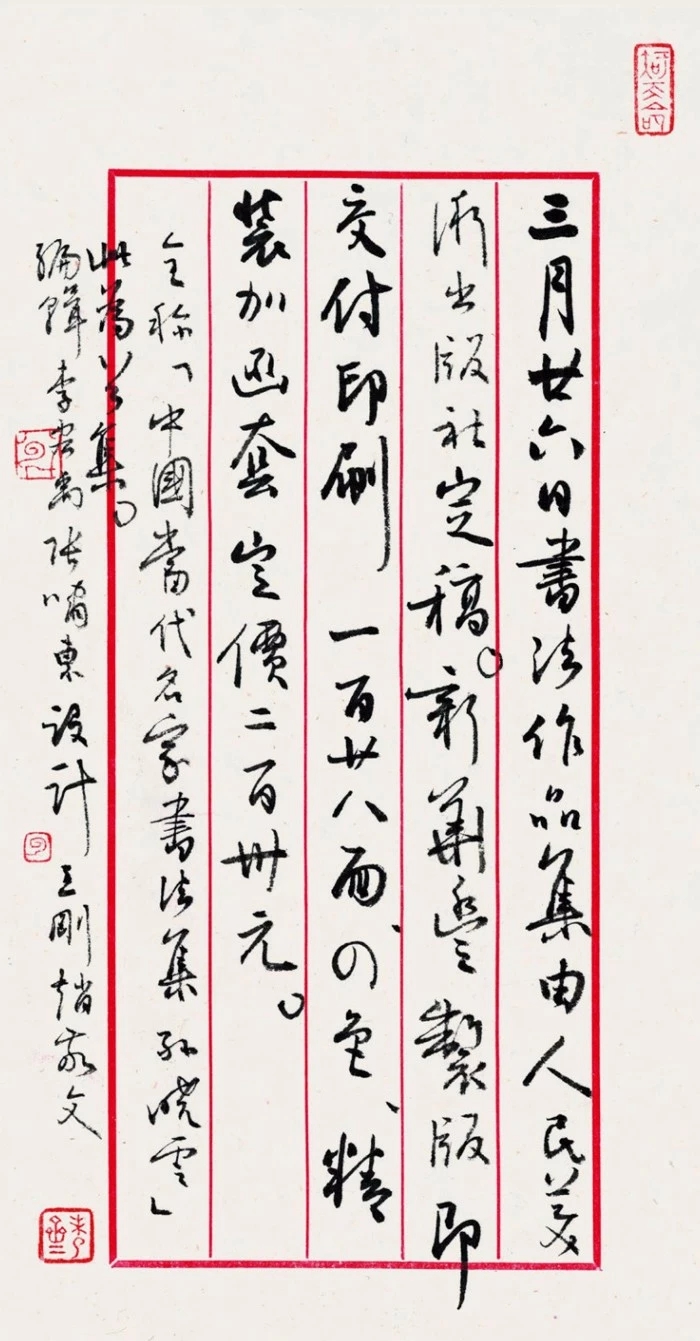 三月廿六日書法作品集由人民美
術出版社定稿。新華豐製版即
交付印刷 一百廿八面、四色、精
裝加函套定價二百卅元。
全称「中國當代名家書法集 孫曉雲」
此為首集。
編輯 李宏禹 張嘯東 設計 王剛 趙敬文